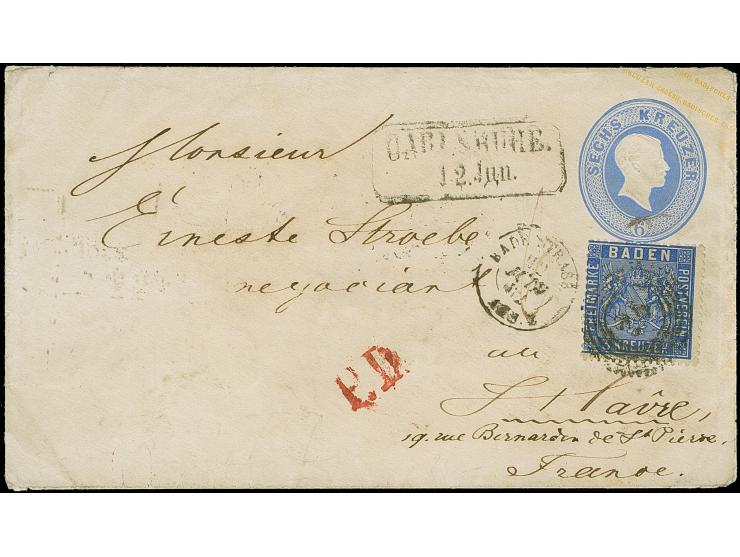 Monsieur
Erneste Stroebe
negociant
au
Havre,
19. rue Bernardin de St Pierre,
France.
CARLSRUHE.
12. Jun.
SECHS KREUZER
6
BADEN
FREIMARKE
POSTVEREIN
KREUZER
P.D.
BADE STRASB
JUIN